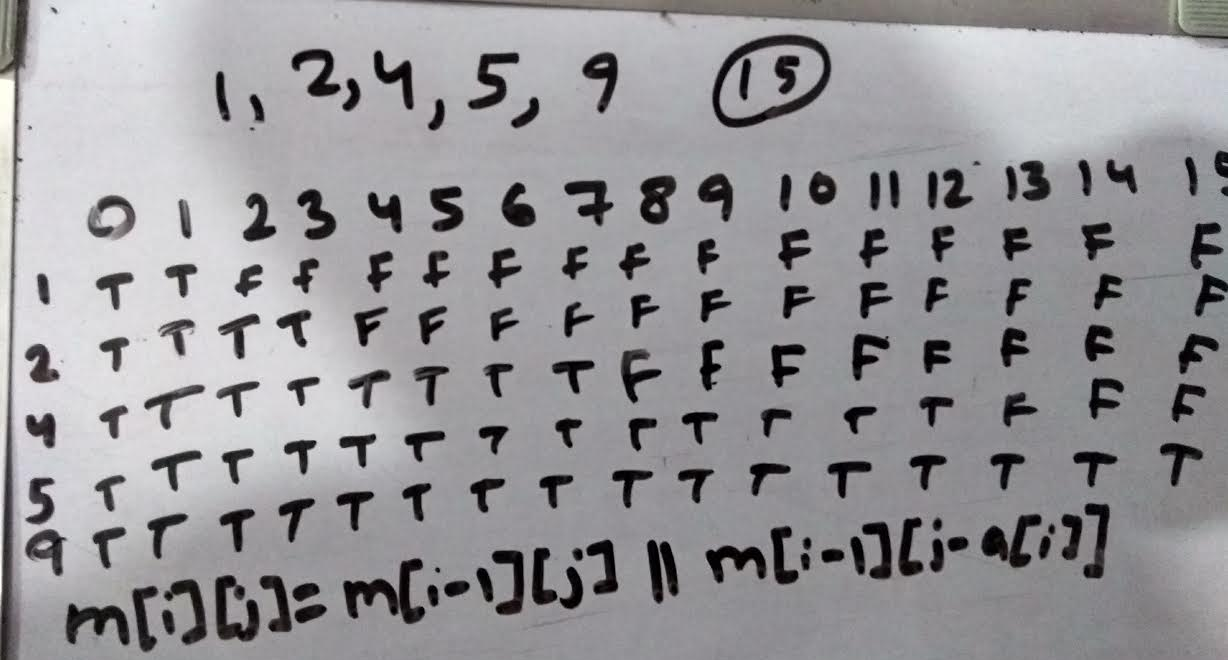 1, 2, 4, 5, 9 15
0 1 2 3 4 5 6 7 8 9 10 11 12 13 14 15
1 T T F F F F F F F F F F F F F F
2 T T T T F F F F F F F F F F F F
4 T T T T T T T T F F F F F F F F
5 T T T T T T T T T T T T T F F F
9 T T T T T T T T T T T T T T T T
m[i][j]=m[i-1][j] || m[i-1][j-a[i]]